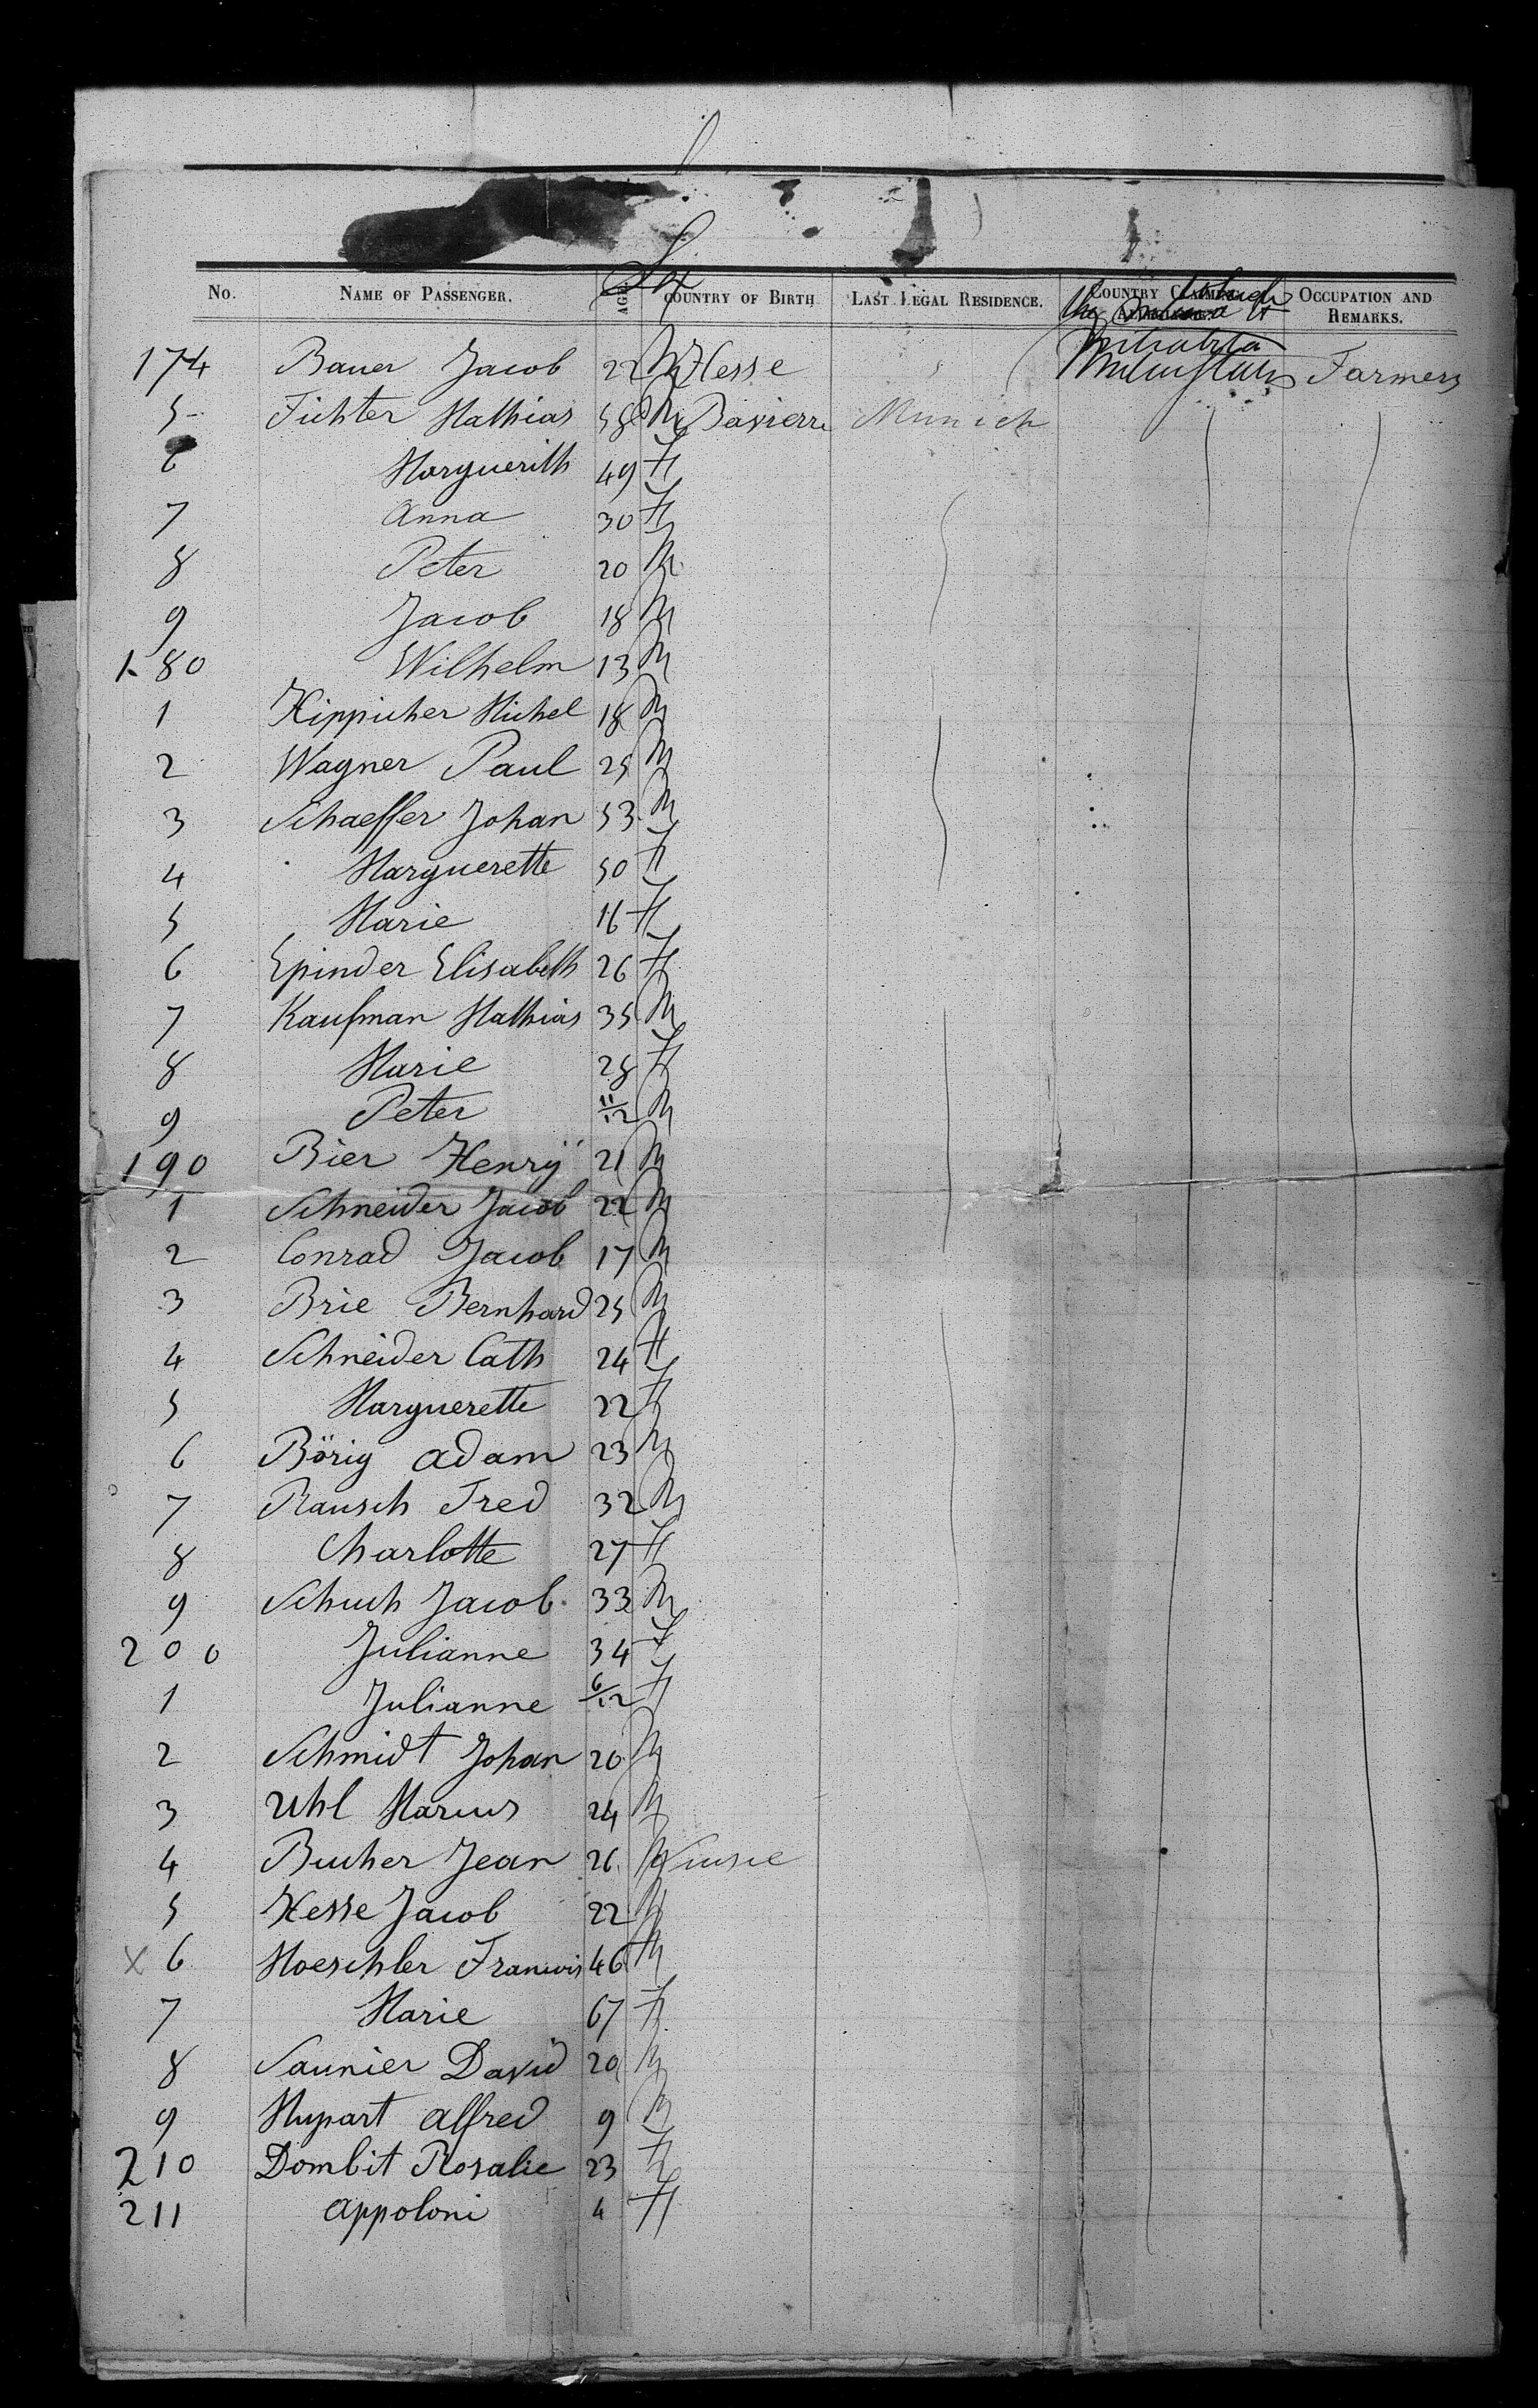 Sex
No. NAME OF PASSENGER. AGE. COUNTRY OF BIRTH LAST LEGAL RESIDENCE. COUNTRY CLAIMING OCCUPATION AND REMARKS.
174 Bauer Jacob 22 M Hesse Farmers
5 Fichter Mathias 58 M Bavierre Munich
6 Marguerith 49 F
7 Anna 30 F
8 Peter 20 M
9 Jacob 18 M
180 Wilhelm 13 M
1 Kippicher Michel 18 M
2 Wagner Paul 25 M
3 Schaeffer Johan 53 M
4 Marguerette 50 F
5 Marie 16 F
6 Epinder Elisabeth 26 F
7 Kaufman Mathias 35 M
8 Marie 28 F
9 Peter 11/12 M
190 Bier Henrÿ 21 M
1 Schneider Jacob 22 M
2 Conrad Jacob 17 M
3 Brie Bernhard 25 M
4 Schneider Cath 24 F
5 Marguerette 22 F
6 Börig Adam 23 M
7 Rausch Fred 32 M
8 Charlotte 27 F
9 Schuch Jacob 33 M
200 Julianne 34 F
1 Julianne 6/12 F
2 Schmidt Johan 20 M
3 Uhl Marcus 24 M
4 Bucher Jean 26 M
5 Hesse Jacob 22 M
x 6 Moeschler Francois 46 M
7 Marie 67 F
8 Saunier David 20 M
9 Hupart Alfred 9 M
210 Dombit Rosalie 23 F
211 Appoloni 4 F